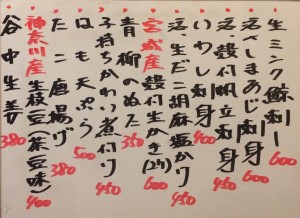 生ミンク鯨刺し 600
べしまあじ刺身
活、殻付帆立刺身 450
いわし刺身 400
活、生だこ胡麻塩かり
宮城産殻付生かき(2ケ) 600
青柳のぬた 350
子持ちかれい煮付け 450
はも天ぷら 500
たこ唐揚げ 380
神奈川産生枝豆(茶豆味) 400
谷中生姜 380